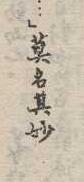 …」莫名其妙